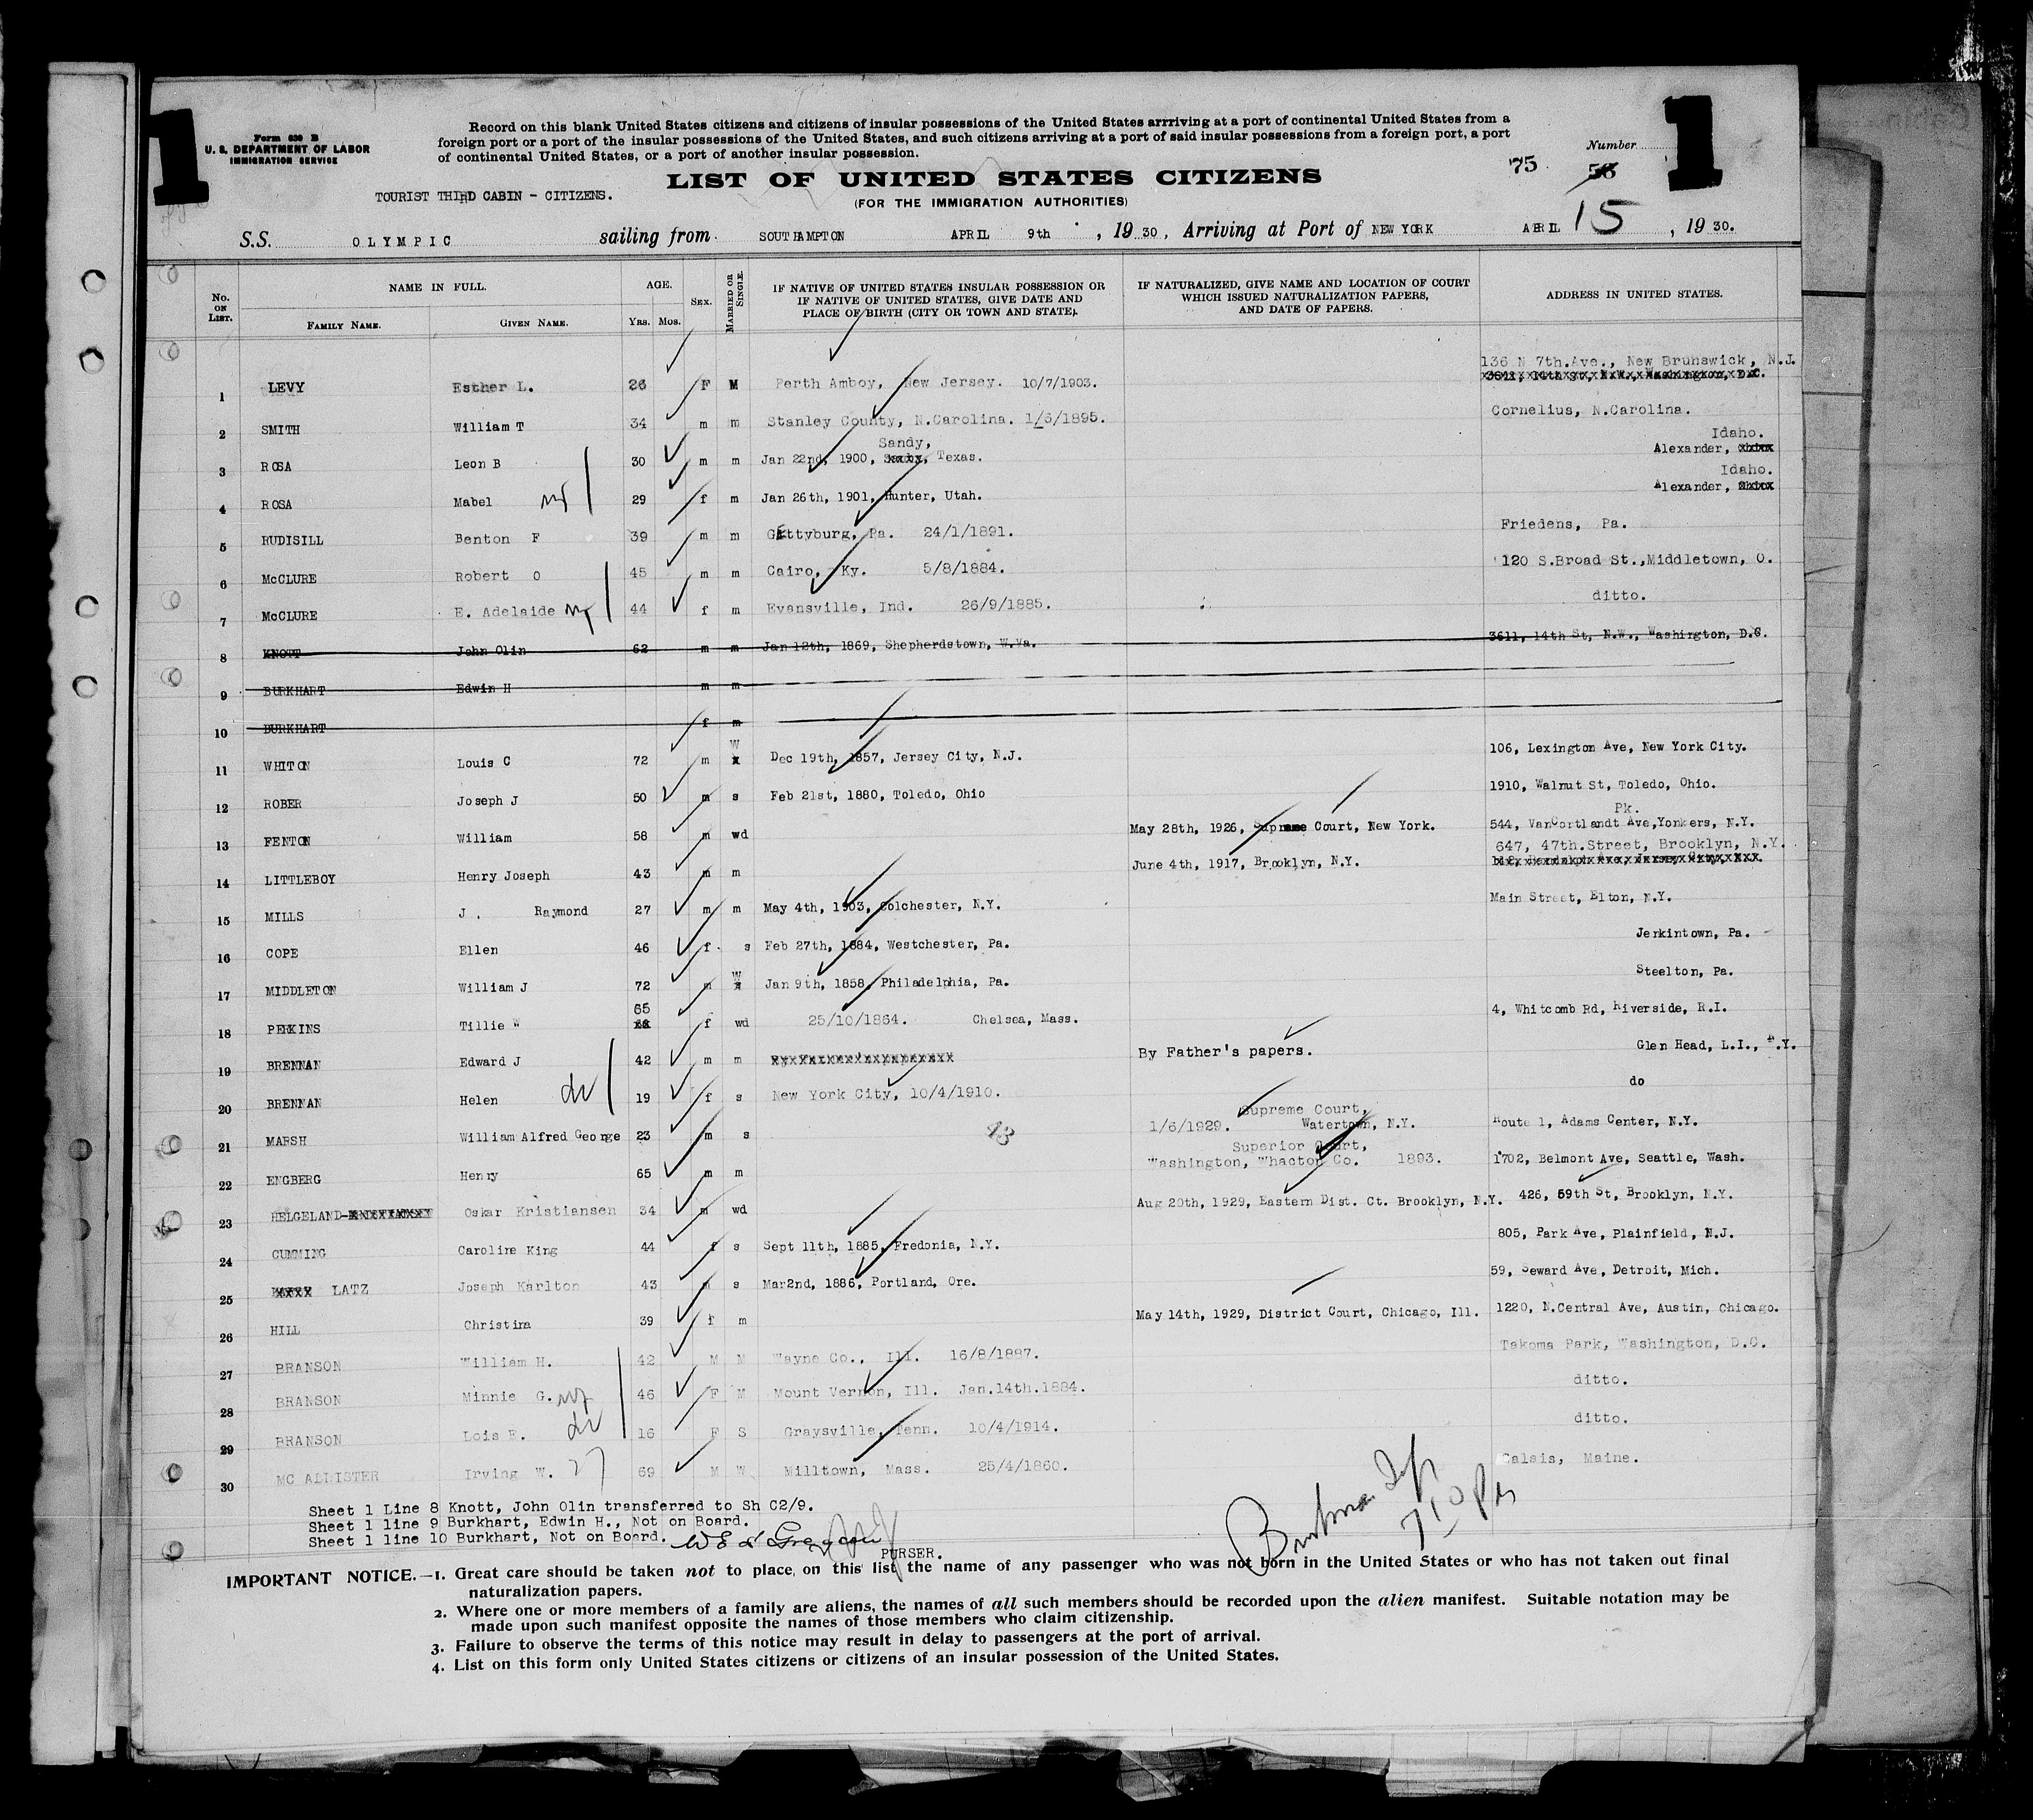 1
1
Form 630 B
U. S. DEPARTMENT OF LABOR
IMMIGRATION SERVICE
Record on this blank United States citizens and citizens of insular possessions of the United States arriving at a port of continental United States from a
foreign port or a port of the insular possessions of the United States, and such citizens arriving at a port of said insular possessions from a foreign port, a port
of continental United States, or a port of another insular possession.
Number
75 56
LIST OF UNITED STATES CITIZENS
TOURIST THIRD CABIN - CITIZENS.
(FOR THE IMMIGRATION AUTHORITIES)
S.S. OLYMPIC sailing from SOUTHAMPTON APRIL 9th , 19 30, Arriving at Port of NEW YORK APRIL 15 , 19 30.
No. ON LIST. NAME IN FULL. FAMILY NAME. GIVEN NAME. AGE. Yrs. Mos. SEX. MARRIED OR SINGLE. IF NATIVE OF UNITED STATES INSULAR POSSESSION OR IF NATIVE OF UNITED STATES, GIVE DATE AND PLACE OF BIRTH (CITY OR TOWN AND STATE). IF NATURALIZED, GIVE NAME AND LOCATION OF COURT WHICH ISSUED NATURALIZATION PAPERS, AND DATE OF PAPERS. ADDRESS IN UNITED STATES.
136 N 7th.Ave., New Brunswick, N.J.
1 LEVY Esther L. 26 F M Perth Amboy, New Jersey. 10/7/1903. 3611, 14th St, N.W., Washington, D.C.
2 SMITH William T 34 m m Stanley County, N.Carolina. 1/6/1895. Cornelius, N.Carolina.
Sandy, Idaho.
3 ROSA Leon B 30 m m Jan 22nd, 1900, Texas. Alexander,
Idaho.
4 ROSA Mabel 29 f m Jan 26th, 1901, Hunter, Utah. Alexander,
5 RUDISILL Benton F 39 m m Gettyburg, Pa. 24/1/1891. Friedens, Pa.
6 McCLURE Robert O 45 m m Cairo, Ky. 5/8/1884. 120 S.Broad St.,Middletown, O.
7 McCLURE E. Adelaide 44 f m Evansville, Ind. 26/9/1885. ditto.
8 KNOTT John Olin 62 m m Jan 12th, 1869, Shepherdstown, W.Va. 3611, 14th St, N.W., Washington, D.C.
9 BURKHART Edwin H m m
10 BURKHART f m
W
11 WHITON Louis C 72 m Dec 19th, 1857, Jersey City, N.J. 106, Lexington Ave, New York City.
12 ROBER Joseph J 50 m s Feb 21st, 1880, Toledo, Ohio 1910, Walnut St, Toledo, Ohio.
Pk.
13 FENTON William 58 m wd May 28th, 1926, Supreme Court, New York. 544, VanCortlandt Ave,Yonkers, N.Y.
647, 47th.Street, Brooklyn, N.Y.
14 LITTLEBOY Henry Joseph 43 m m June 4th, 1917, Brooklyn, N.Y.
15 MILLS J. Raymond 27 m m May 4th, 1903, Colchester, N.Y. Main Street, Elton, N.Y.
16 COPE Ellen 46 f. s Feb 27th, 1884, Westchester, Pa. Jerkintown, Pa.
W
17 MIDDLETON William J 72 m Jan 9th, 1858, Philadelphia, Pa. Steelton, Pa.
65
18 PERKINS Tillie W f wd 25/10/1864. Chelsea, Mass. 4, Whitcomb Rd, Riverside, R.I.
19 BRENNAN Edward J 42 m m By Father's papers. Glen Head, L.I., N.Y.
20 BRENNAN Helen 19 f s New York City, 10/4/1910. do
Supreme Court,
21 MARSH William Alfred George 23 m s 1/6/1929. Watertown, N.Y. Route 1, Adams Center, N.Y.
Superior Court,
22 ENGBERG Henry 65 m m Washington, Whacton Co. 1893. 1702, Belmont Ave, Seattle, Wash.
23 HELGELAND Oskar Kristiansen 34 m wd Aug 20th, 1929, Eastern Dist. Ct. Brooklyn, N.Y. 426, 59th St, Brooklyn, N.Y.
24 CUMMING Caroline King 44 f s Sept 11th, 1885, Fredonia, N.Y. 805, Park Ave, Plainfield, N.J.
25 LATZ Joseph Karlton 43 m s Mar2nd, 1886, Portland, Ore. 59, Seward Ave, Detroit, Mich.
26 HILL Christina 39 f m May 14th, 1929, District Court, Chicago, Ill. 1220, N.Central Ave, Austin, Chicago.
27 BRANSON William H. 42 M M Wayne Co., Ill. 16/8/1887. Takoma Park, Washington, D.C.
28 BRANSON Minnie G. 46 F M Mount Vernon, Ill. Jan.14th.1884. ditto.
29 BRANSON Lois E. 16 F S Graysville, Tenn. 10/4/1914. ditto.
30 MC ALLISTER Irving W. 69 M W Milltown, Mass. 25/4/1860. Calais, Maine.
Sheet 1 Line 8 Knott, John Olin transferred to Sh C2/9.
Sheet 1 line 9 Burkhart, Edwin H., Not on Board.
Sheet 1 line 10 Burkhart, Not on Board.
PURSER.
IMPORTANT NOTICE.—1. Great care should be taken not to place on this list the name of any passenger who was not born in the United States or who has not taken out final
naturalization papers.
2. Where one or more members of a family are aliens, the names of all such members should be recorded upon the alien manifest. Suitable notation may be
made upon such manifest opposite the names of those members who claim citizenship.
3. Failure to observe the terms of this notice may result in delay to passengers at the port of arrival.
4. List on this form only United States citizens or citizens of an insular possession of the United States.